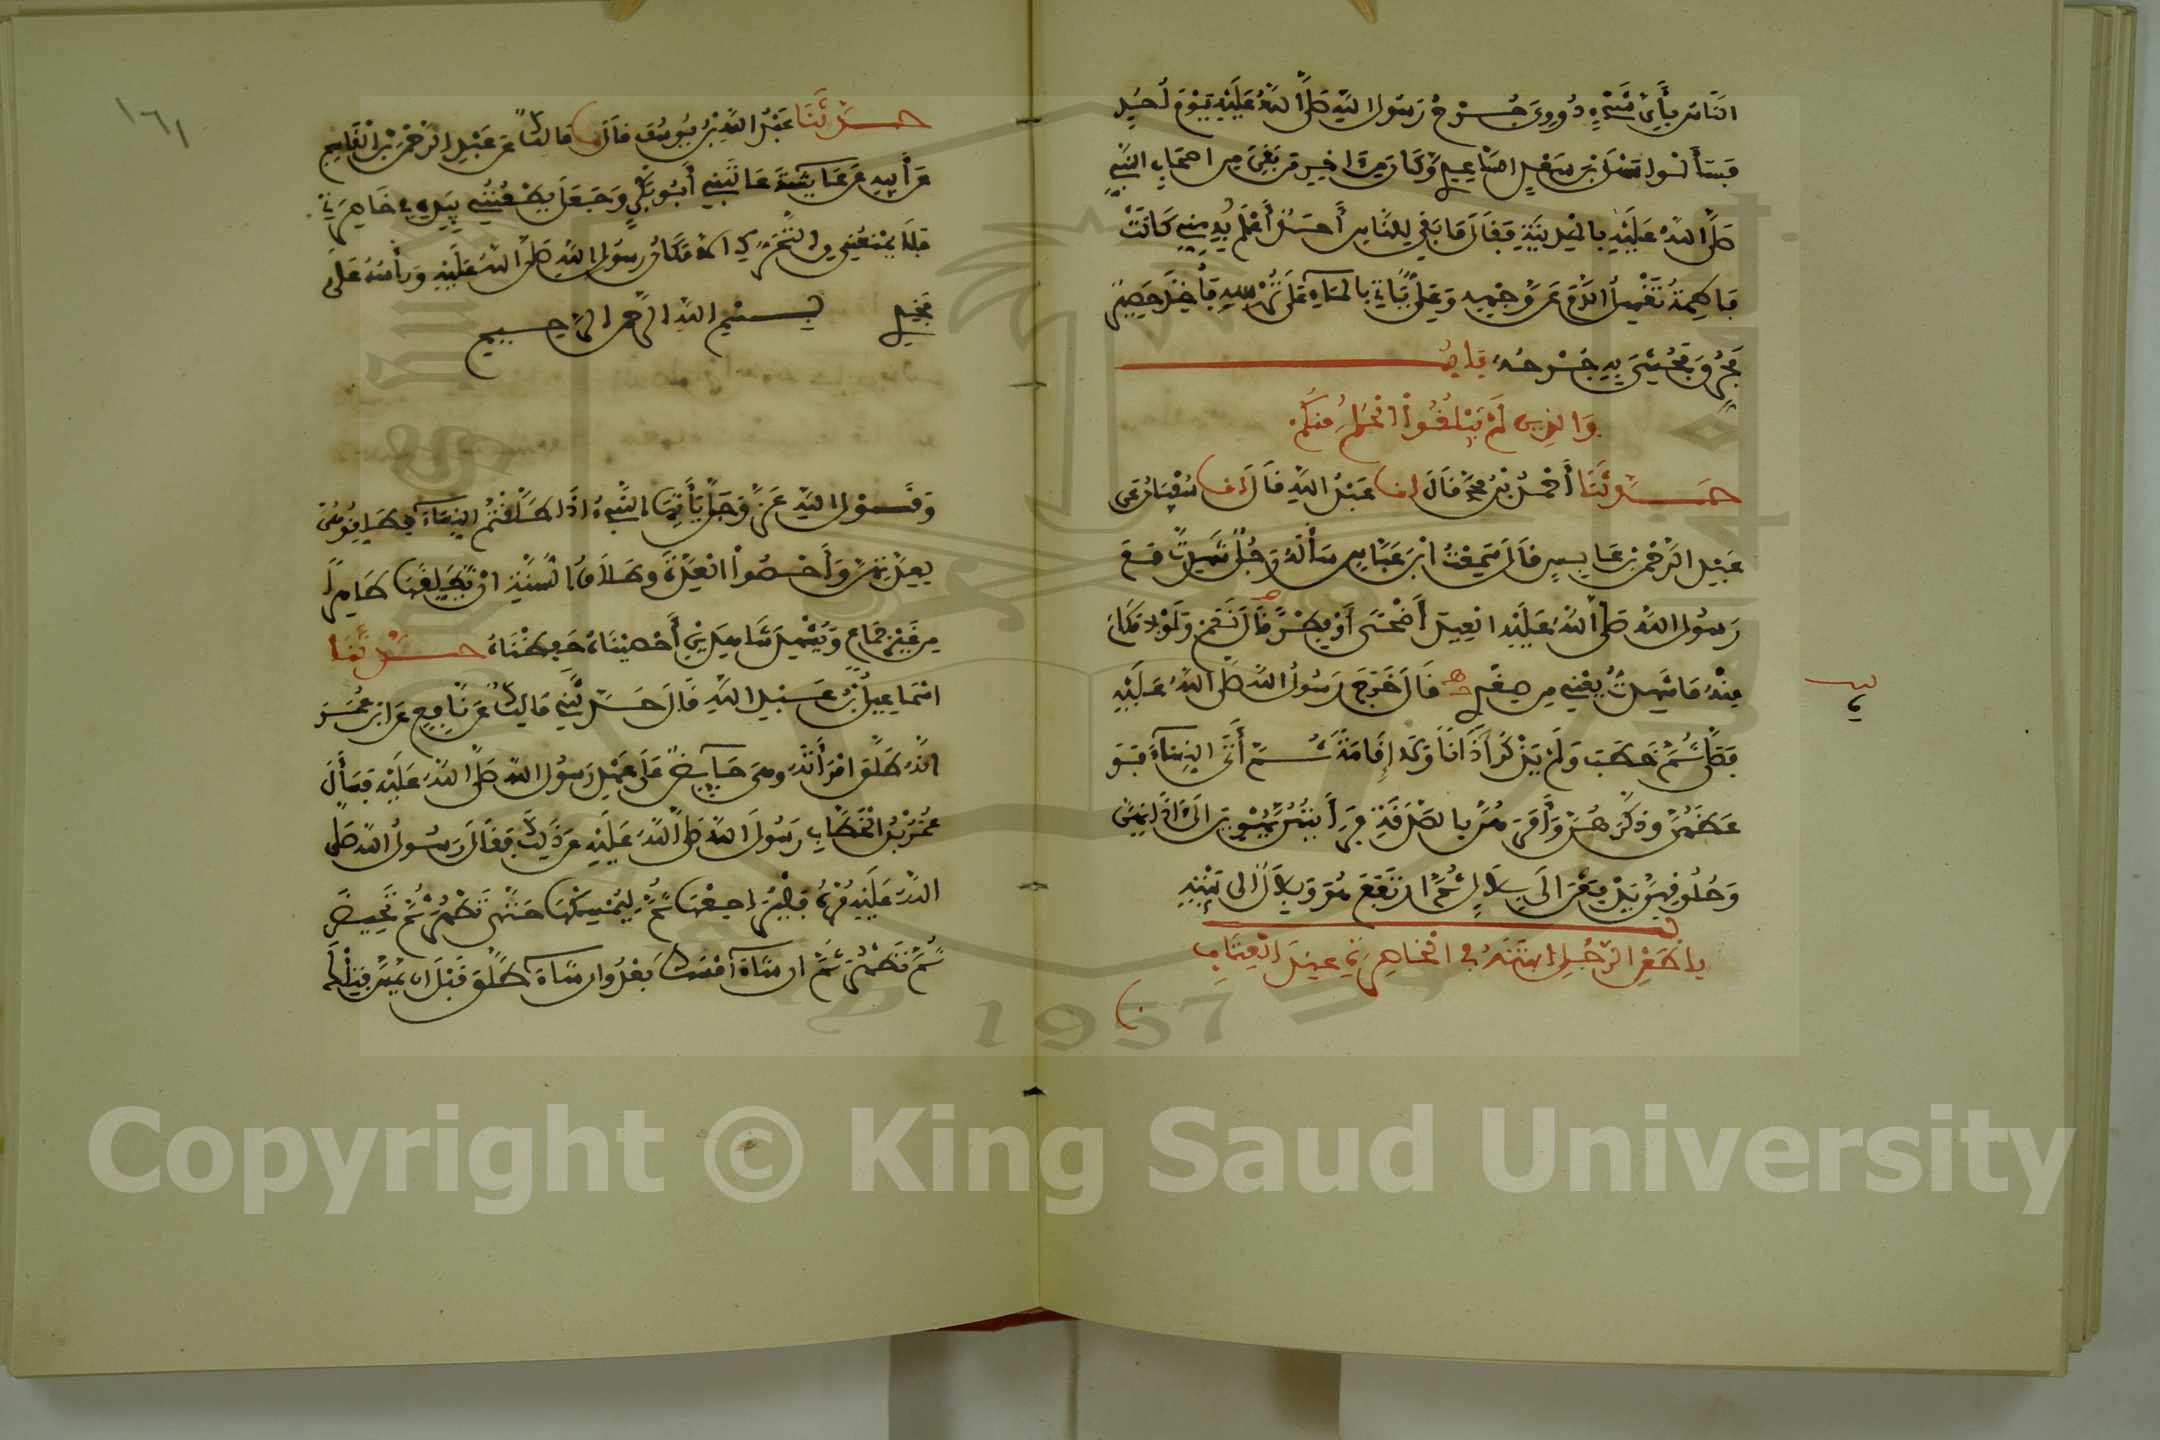 النَّاسُ بِأَيِّ شَيْءٍ دُووِيَ جُرْحُ رَسُولِ اللَّهِ صَلَّى اللَّهُ عَلَيْهِ يَوْمَ أُحُدٍ
فَسَأَلُوا سَهْلَ بْنَ سَعْدٍ السَّاعِدِي وَكَانَ مِنْ آخِرِ مَنْ بَقِيَ مِنْ أَصْحَابِ النَّبِيِّ
صَلَّى اللَّهُ عَلَيْهِ بِالْمَدِينَةِ فَقَالَ مَا بَقِيَ لِلنَّاسِ أَحَدٌ أَعْلَمُ بِهِ مِنِّي كَانَتْ
فَاطِمَةُ تَغْسِلُ الدَّمَ عَنْ وَجْهِهِ وَعَلِيٌّ يَأْتِي بِالْمَاءِ عَلَى تُرْسِهِ فَأُخِذَ حَصِيرٌ
فَحُرِّقَ فَحُشِيَ بِهِ جُرْحُهُ بَابُ
وَالَّذِينَ لَمْ يَبْلُغُوا الْحُلُمَ مِنْكُمْ
حَدَّثَنَا أَحْمَدُ بْنُ مُحَمَّدٍ قَالَ انا عَبْدُ اللَّهِ قَالَ انا سُفْيَانُ عَنْ
عَبْدِ الرَّحْمَنِ بْنِ عَابِسٍ قَالَ سَمِعْتُ ابْنَ عَبَّاسٍ سَأَلَهُ رَجُلٌ شَهِدْتَ مَعَ
رَسُولِ اللَّهِ صَلَّى اللَّهُ عَلَيْهِ الْعِيدَ أَضْحًى أَوْ فِطْرًا قَالَ نَعَمْ وَلَوْلَا مَكَانِي
مِنْهُ مَا شَهِدْتُهُ يَعْنِي مِنْ صِغَرِهِ قَالَ خَرَجَ رَسُولُ اللَّهِ صَلَّى اللَّهُ عَلَيْهِ
فَصَلَّى ثُمَّ خَطَبَ وَلَمْ يَذْكُرْ أَذَانًا وَلَا إِقَامَةً ثُمَّ أَتَى النِّسَاءَ فَوَ
عَظَهُنَّ وَذَكَّرَهُنَّ وَأَمَرَهُنَّ بِالصَّدَقَةِ فَرَأَيْتُهُنَّ يَهْوِينَ إِلَى آذَانِهِنَّ
وَحُلُوقِهِنَّ يَدْفَعْنَ إِلَى بِلَالٍ ثُمَّ ارْتَفَعَ هُوَ وَبِلَالٌ إِلَى بَيْتِهِ
باب
طَعْنِ الرَّجُلِ ابْنَتَهُ فِي الْخَاصِرَةِ عِنْدَ الْعِتَابِ
١٦١
حَدَّثَنَا عَبْدُ اللَّهِ بْنُ يُوسُفَ قَالَ انا مَالِكٌ عَنْ عَبْدِ الرَّحْمَنِ بْنِ الْقَاسِمِ
عَنْ أَبِيهِ عَنْ عَائِشَةَ عَاتَبَنِي أَبُو بَكْرٍ وَجَعَلَ يَطْعُنُنِي بِيَدِهِ فِي خَاصِرَتِي
فَلَا يَمْنَعُنِي مِنَ التَّحَرُّكِ إِلَّا مَكَانُ رَسُولِ اللَّهِ صَلَّى اللَّهُ عَلَيْهِ وَرَأْسُهُ عَلَى
فَخِذِي بِسْمِ اللَّهِ الرَّحْمَنِ الرَّحِيمِ
وَقَوْلُ اللَّهِ عَزَّ وَجَلَّ يَا أَيُّهَا النَّبِيءُ إِذَا طَلَّقْتُمُ النِّسَاءَ فَطَلِّقُوهُنَّ
لِعِدَّتِهِنَّ وَأَحْصُوا الْعِدَّةَ وَطَلَاقُ السُّنَّةِ أَنْ يُطَلِّقَهَا طَاهِرًا
مِنْ غَيْرِ جِمَاعٍ وَيُشْهِدَ شَاهِدَيْنِ أَحْصَيْنَاهُ حَفِظْنَاهُ حَدَّثَنَا
إِسْمَاعِيلُ بْنُ عَبْدِ اللَّهِ قَالَ حَدَّثَنِي مَالِكٌ عَنْ نَافِعٍ عَنِ ابْنِ عُمَرَ
أَنَّهُ طَلَّقَ امْرَأَتَهُ وَهِيَ حَائِضٌ عَلَى عَهْدِ رَسُولِ اللَّهِ صَلَّى اللَّهُ عَلَيْهِ فَسَأَلَ
عُمَرُ بْنُ الْخَطَّابِ رَسُولَ اللَّهِ صَلَّى اللَّهُ عَلَيْهِ عَنْ ذَلِكَ فَقَالَ رَسُولُ اللَّهِ صَلَّى
اللَّهُ عَلَيْهِ مُرْهُ فَلْيُرَاجِعْهَا ثُمَّ لِيُمْسِكْهَا حَتَّى تَطْهُرَ ثُمَّ تَحِيضَ
ثُمَّ تَطْهُرَ ثُمَّ إِنْ شَاءَ أَمْسَكَ بَعْدُ وَإِنْ شَاءَ طَلَّقَ قَبْلَ أَنْ يَمَسَّ فَتِلْكَ
1957
Copyright © King Saud University